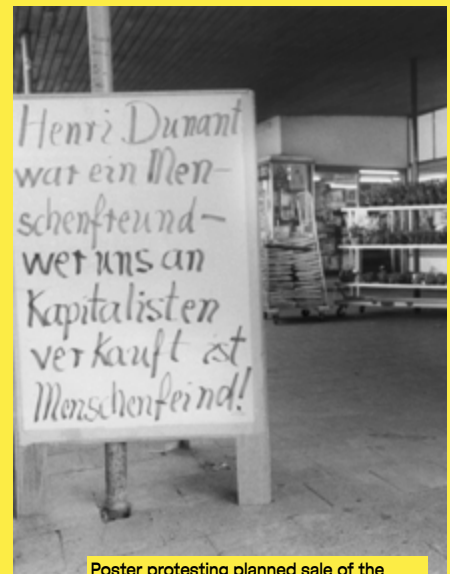 Henri Dunant
war ein Men-
schenfreund-
wer uns an
Kapitalisten
verkauft ist
Menschenfeind!
Poster protesting planned sale of the